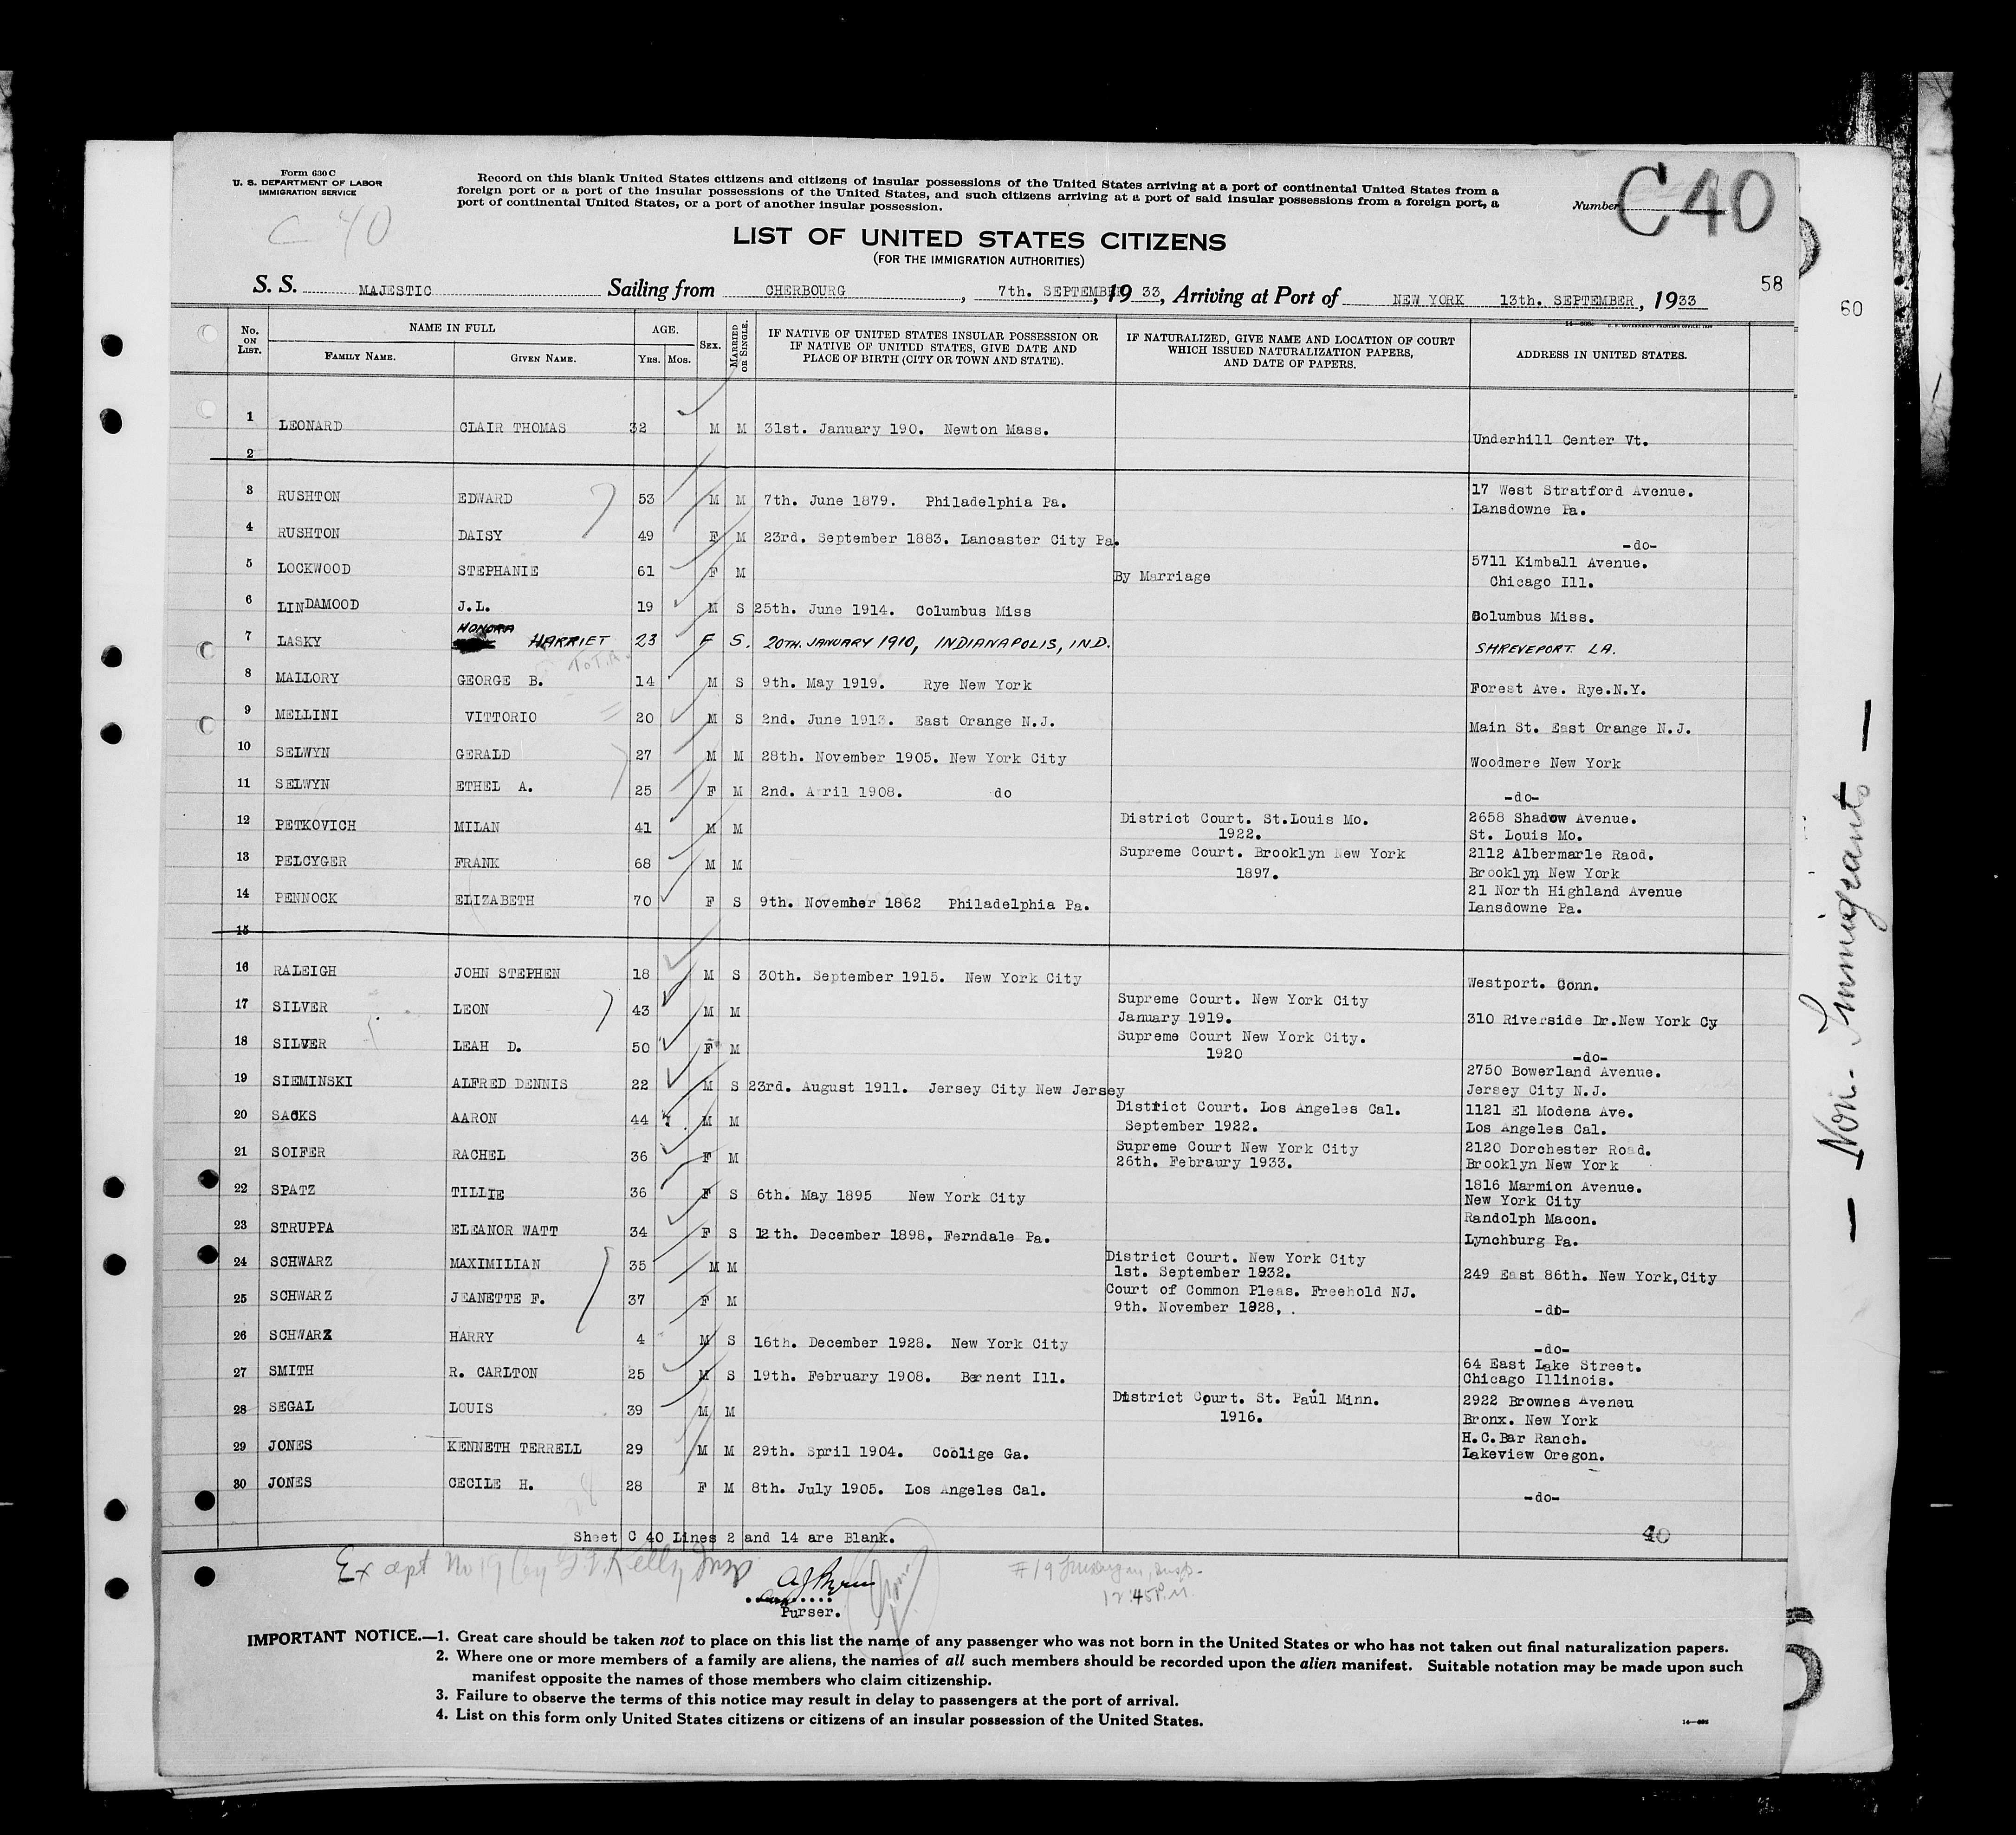 Form 630 C
U. S. DEPARTMENT OF LABOR
IMMIGRATION SERVICE
C 40
Record on this blank United States citizens and citizens of insular possessions of the United States arriving at a port of continental United States from a
foreign port or a port of the insular possessions of the United States, and such citizens arriving at a port of said insular possessions from a foreign port, a
port of continental United States, or a port of another insular possession.
Number C40
LIST OF UNITED STATES CITIZENS
(FOR THE IMMIGRATION AUTHORITIES)
58
60
S. S. MAJESTIC Sailing from CHERBOURG, 7th. SEPTEMBER, 1933, Arriving at Port of NEW YORK 13th. SEPTEMBER, 1933
No. ON LIST. NAME IN FULL FAMILY NAME. GIVEN NAME. AGE. YRS. MOS. SEX. MARRIED OR SINGLE.
IF NATIVE OF UNITED STATES INSULAR POSSESSION OR
IF NATIVE OF UNITED STATES, GIVE DATE AND
PLACE OF BIRTH (CITY OR TOWN AND STATE).
IF NATURALIZED, GIVE NAME AND LOCATION OF COURT
WHICH ISSUED NATURALIZATION PAPERS,
AND DATE OF PAPERS.
ADDRESS IN UNITED STATES.
1 LEONARD CLAIR THOMAS 32 M M 31st. January 190. Newton Mass. Underhill Center Vt.
2
3 RUSHTON EDWARD 53 M M 7th. June 1879. Philadelphia Pa. 17 West Stratford Avenue.
Lansdowne Pa.
4 RUSHTON DAISY 49 F M 23rd. September 1883. Lancaster City Pa. -do-
5 LOCKWOOD STEPHANIE 61 F M By Marriage 5711 Kimball Avenue.
Chicago Ill.
6 LINDAMOOD J.L. 19 M S 25th. June 1914. Columbus Miss Columbus Miss.
7 LASKY HONORA HARRIET 23 F S. 20TH. JANUARY 1910, INDIANAPOLIS, IND. SHREVEPORT LA.
8 MALLORY GEORGE B. 14 M S 9th. May 1919. Rye New York Forest Ave. Rye.N.Y.
9 MELLINI VITTORIO 20 M S 2nd. June 1913. East Orange N.J. Main St. East Orange N.J.
10 SELWYN GERALD 27 M M 28th. November 1905. New York City Woodmere New York
11 SELWYN ETHEL A. 25 F M 2nd. April 1908. do -do-
12 PETKOVICH MILAN 41 M M District Court. St.Louis Mo. 2658 Shadow Avenue.
1922. St. Louis Mo.
13 PELCYGER FRANK 68 M M Supreme Court. Brooklyn New York 2112 Albermarle Raod.
1897. Brooklyn New York
14 PENNOCK ELIZABETH 70 F S 9th. November 1862 Philadelphia Pa. 21 North Highland Avenue
Lansdowne Pa.
15
16 RALEIGH JOHN STEPHEN 18 M S 30th. September 1915. New York City Westport. Conn.
17 SILVER LEON 43 M M Supreme Court. New York City
January 1919. 310 Riverside Dr.New York Cy
18 SILVER LEAH D. 50 F M Supreme Court New York City.
1920 -do-
19 SIEMINSKI ALFRED DENNIS 22 M S 23rd. August 1911. Jersey City New Jersey 2750 Bowerland Avenue.
Jersey City N.J.
20 SACKS AARON 44 M M District Court. Los Angeles Cal. 1121 El Modena Ave.
September 1922. Los Angeles Cal.
21 SOIFER RACHEL 36 F M Supreme Court New York City 2120 Dorchester Road.
26th. Febraury 1933. Brooklyn New York
22 SPATZ TILLIE 36 F S 6th. May 1895 New York City 1816 Marmion Avenue.
New York City
23 STRUPPA ELEANOR WATT 34 F S 12th. December 1898. Ferndale Pa. Randolph Macon.
Lynchburg Pa.
24 SCHWARZ MAXIMILIAN 35 M M District Court. New York City
1st. September 1932. 249 East 86th. New York,City
25 SCHWARZ JEANETTE F. 37 F M Court of Common Pleas. Freehold NJ.
9th. November 1928, . -do-
26 SCHWARZ HARRY 4 M S 16th. December 1928. New York City -do-
27 SMITH R. CARLTON 25 M S 19th. February 1908. Bernent Ill. 64 East Lake Street.
Chicago Illinois.
28 SEGAL LOUIS 39 M M District Court. St. Paul Minn. 2922 Brownes Aveneu
1916. Bronx. New York
29 JONES KENNETH TERRELL 29 M M 29th. Spril 1904. Coolige Ga. H.C.Bar Ranch.
Lakeview Oregon.
30 JONES CECILE H. 28 F M 8th. July 1905. Los Angeles Cal. -do-
Sheet C 40 Lines 2 and 14 are Blank.
40
Except No 19
#19
12:45P.M.
Purser.
IMPORTANT NOTICE.—1. Great care should be taken not to place on this list the name of any passenger who was not born in the United States or who has not taken out final naturalization papers.
2. Where one or more members of a family are aliens, the names of all such members should be recorded upon the alien manifest. Suitable notation may be made upon such
manifest opposite the names of those members who claim citizenship.
3. Failure to observe the terms of this notice may result in delay to passengers at the port of arrival.
4. List on this form only United States citizens or citizens of an insular possession of the United States.
— Non-Immigrants —